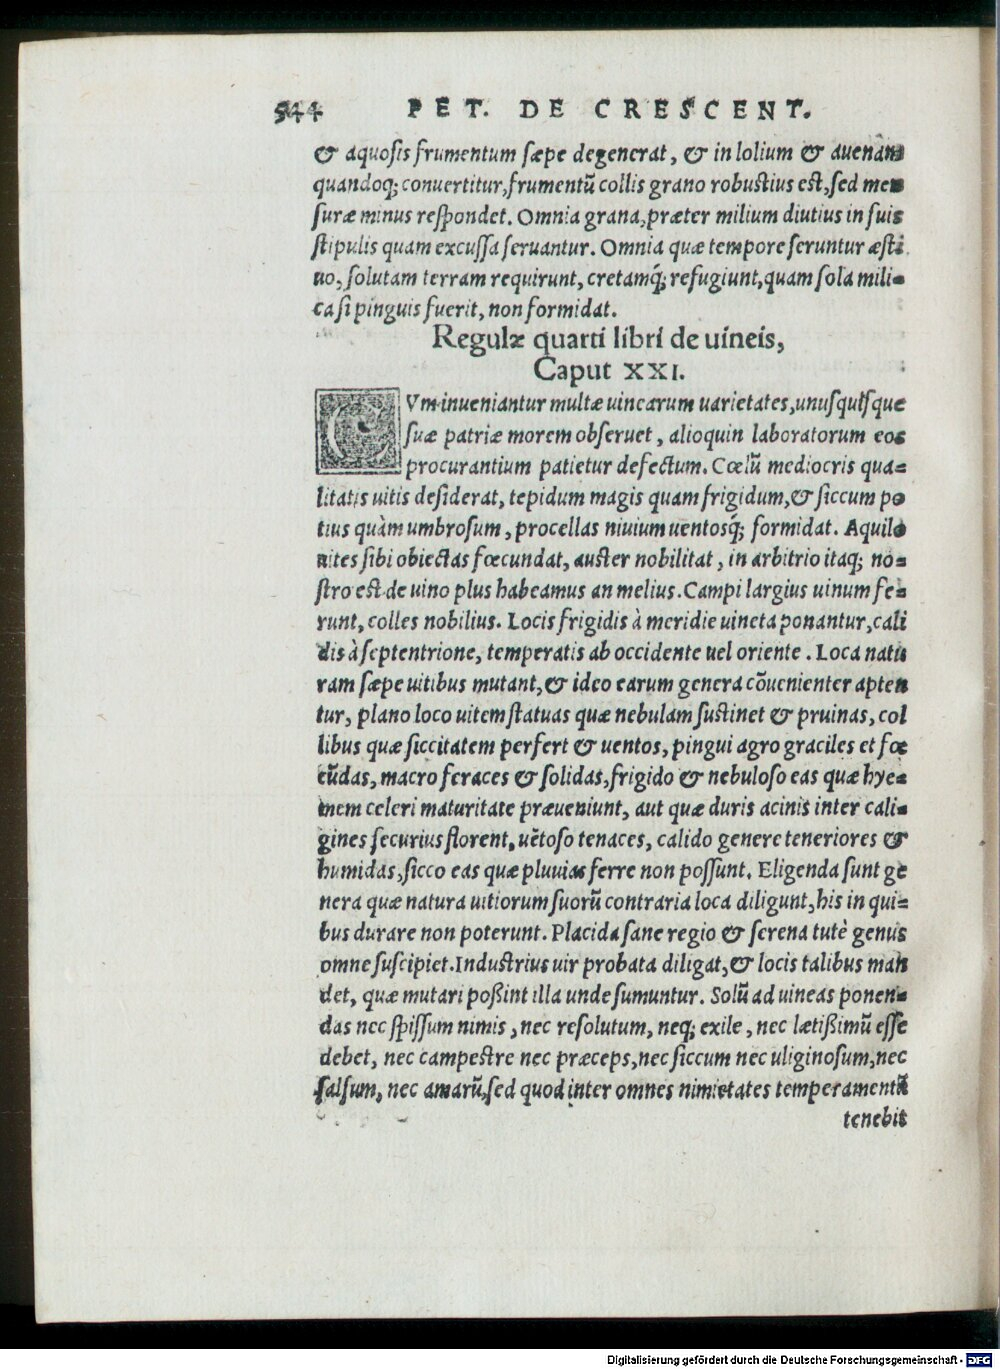 544 PET. DE CRESCENT.
& aquosis frumentum sæpe degenerat, & in lolium & auenam
quandoq; conuertitur, frumentũ collis grano robustius est, sed men
suræ minus respondet. Omnia grana, præter milium diutius in suis
stipulis quam excussa seruantur. Omnia quæ tempore seruntur æsti
uo, solutam terram requirunt, cretamq́; refugiunt, quam sola mili-
ca si pinguis fuerit, non formidat.
Regulæ quarti libri de uineis,
Caput XXI.
CVm inueniantur multæ uincarum uarietates, unusquisque
suæ patriæ morem obseruet, alioquin laboratorum eos
procurantium patietur defectum. Cœlũ mediocris qua-
litatis uitis desiderat, tepidum magis quam frigidum, & siccum po
tius quàm umbrosum, procellas niuium uentosq́; formidat. Aquilo
uites sibi obiectas fœcundat, auster nobilitat, in arbitrio itaq; no-
stro est de uino plus habeamus an melius. Campi largius uinum fe-
runt, colles nobilius. Locis frigidis à meridie uineta ponantur, cali
dis à septentrione, temperatis ab occidente uel oriente. Loca natu
ram sæpe uitibus mutant, & ideo earum genera cõuenienter apten
tur, plano loco uitem statuas quæ nebulam sustinet & pruinas, col
libus quæ siccitatem perfert & uentos, pingui agro graciles et fœ
cũdas, macro feraces & solidas, frigido & nebuloso eas quæ hye-
mem celeri maturitate præueniunt, aut quæ duris acinis inter cali-
gines securius florent, uẽtoso tenaces, calido genere teneriores &
humidas, sicco eas quæ pluuias ferre non possunt. Eligenda sunt ge
nera quæ natura uitiorum suorũ contraria loca diligunt, his in qui-
bus durare non poterunt. Placida sane regio & serena tutè genus
omne suscipiet. Industrius uir probata diligat, & locis talibus man
det, quæ mutari poßint illa unde sumuntur. Solũ ad uineas ponen-
das nec spissum nimis, nec resolutum, neq; exile, nec lætißimũ esse
debet, nec campestre nec præceps, nec siccum nec uliginosum, nec
salsum, nec amarũ, sed quod inter omnes nimietates temperamentũ
tenebit
Digitalisierung gefördert durch die Deutsche Forschungsgemeinschaft - DFG